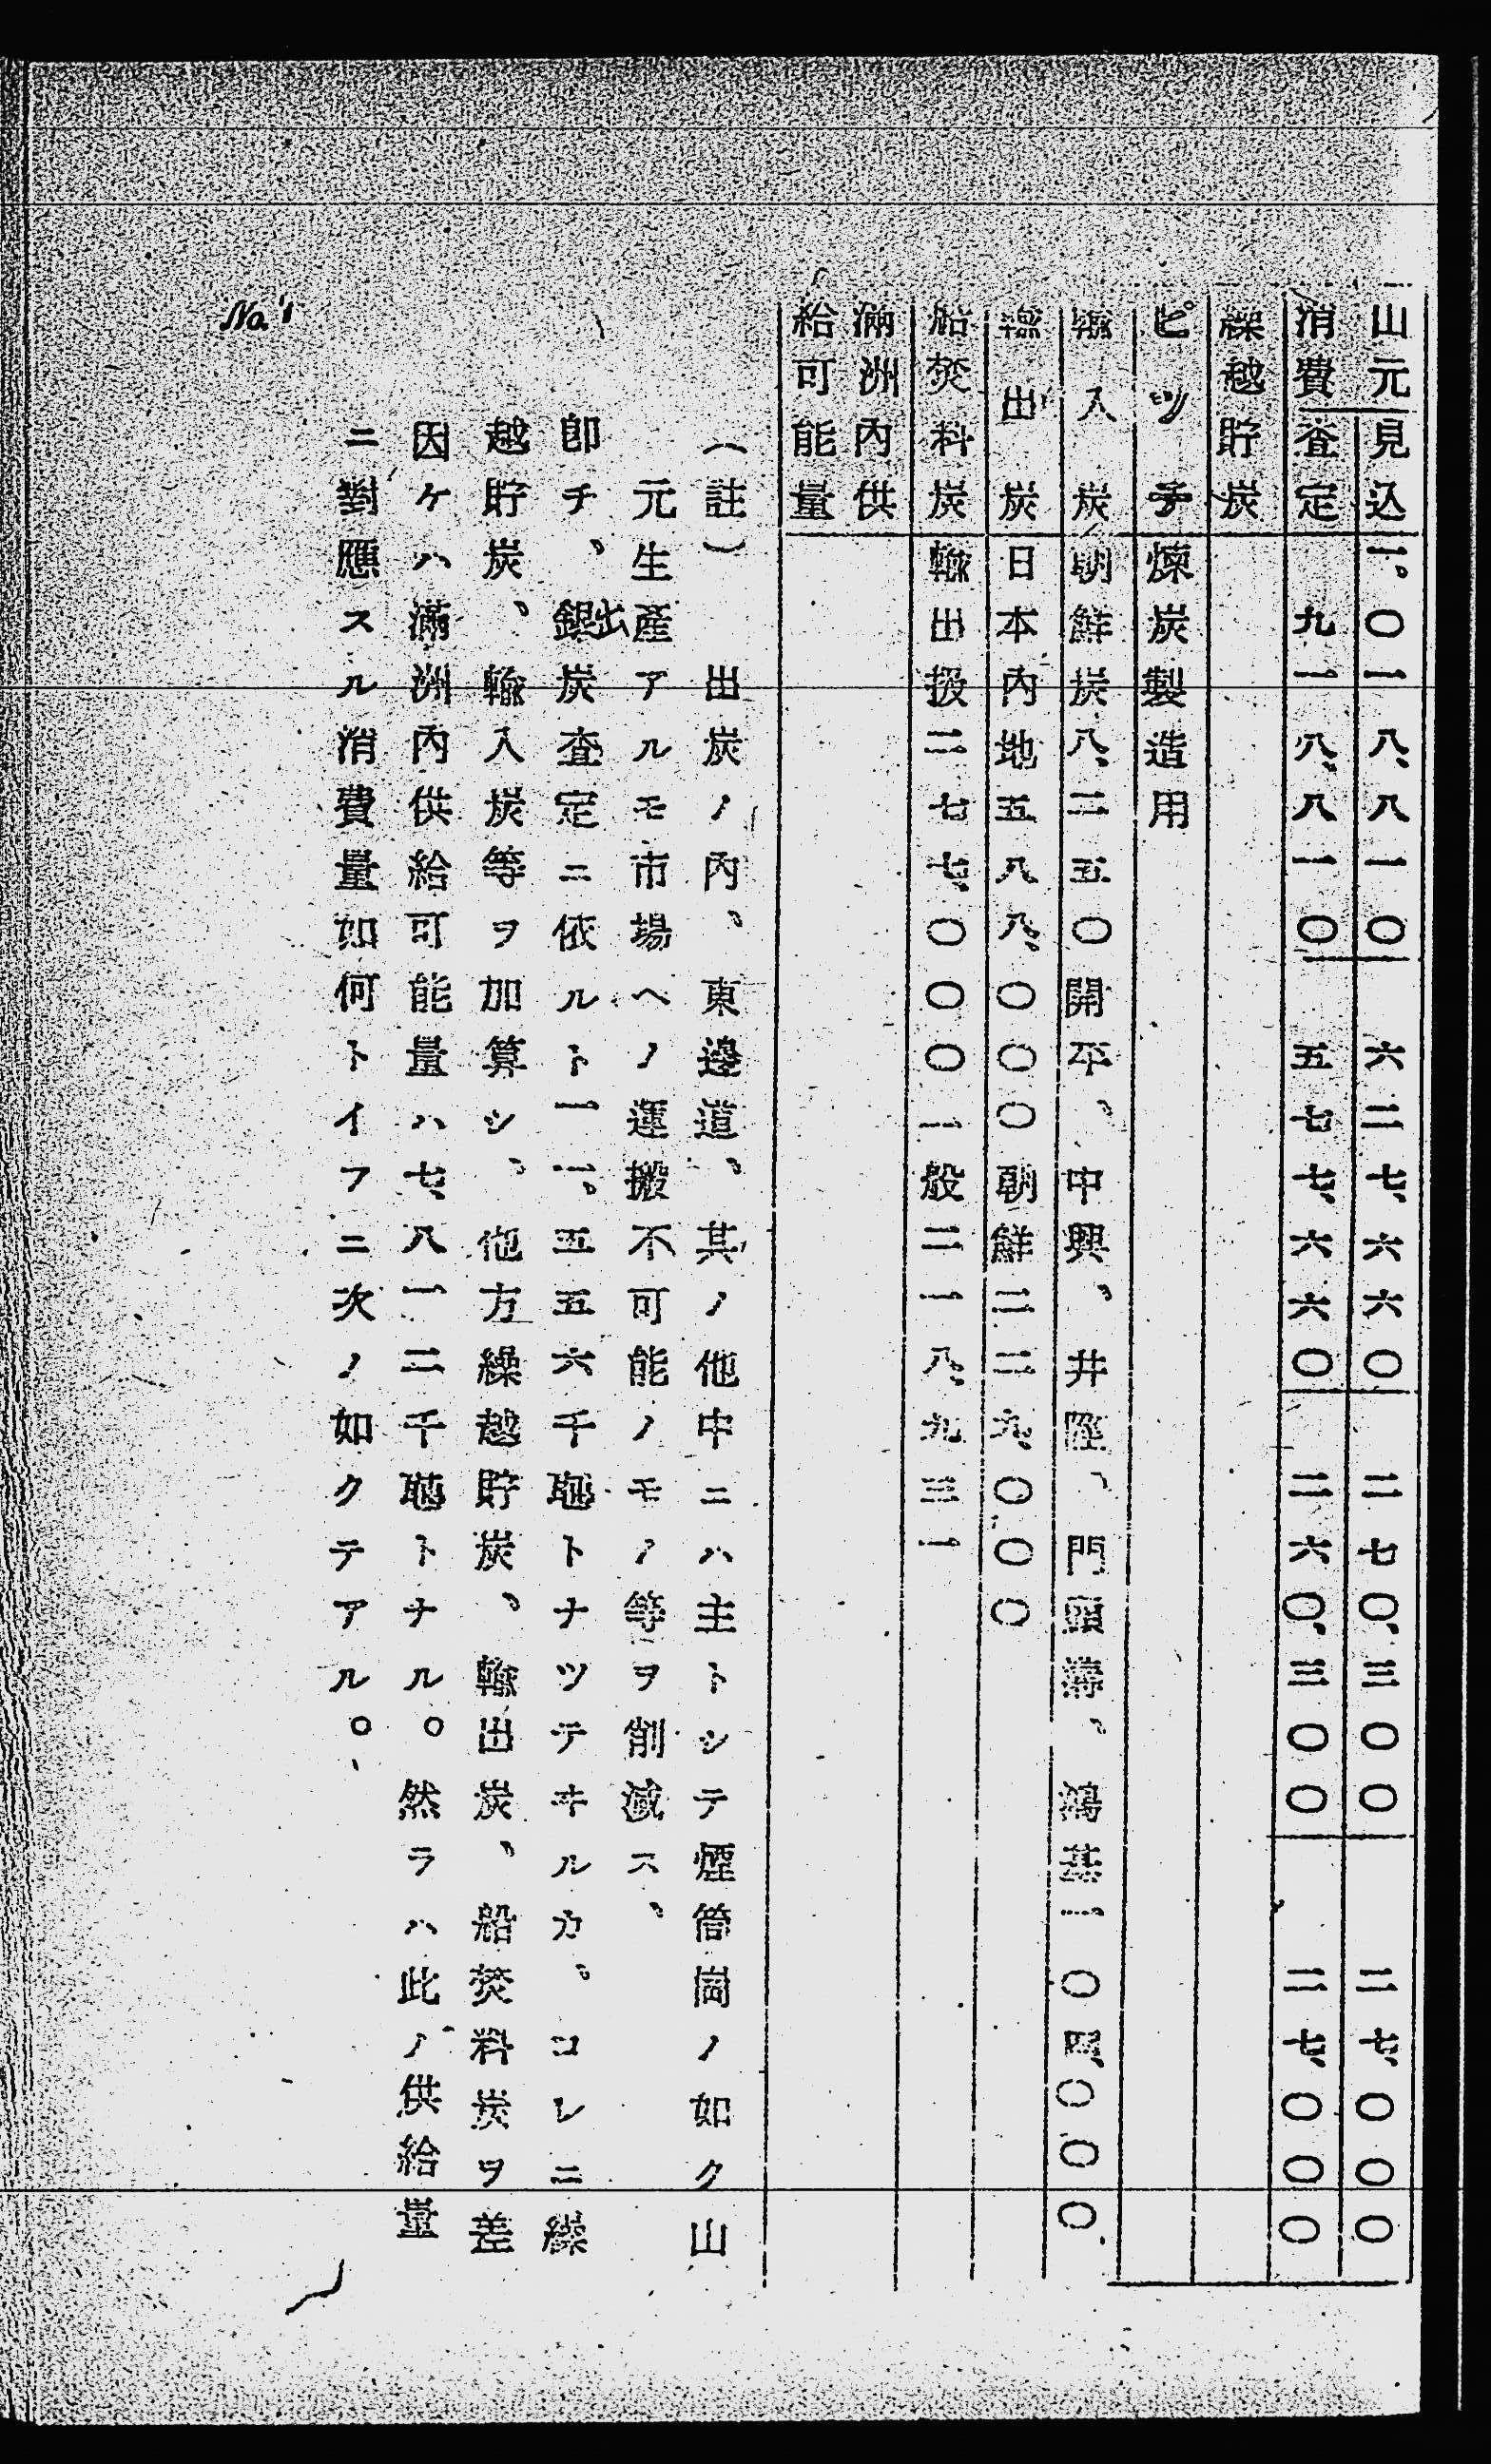 山元見込 一、〇一八、八一〇 六二七、六六〇 二七〇、三〇〇 二七、〇〇〇
消費査定 九一八、八一〇 五七七、六六〇 二六〇、三〇〇 二七、〇〇〇
繰越貯炭
ピツチ 煉炭製造用
輸入炭 朝鮮炭八、二五〇開平、中興、井陘、門頭溝、鴻基一〇四、〇〇〇
輸出炭 日本内地五八八、〇〇〇朝鮮二二九、〇〇〇
船焚料炭 輸出扱二七七、〇〇〇一般二一八、九三一
滿洲内供
給可能量
(註) 出炭ノ内、東邊道、其ノ他中ニハ主トシテ煙筒崗ノ如ク山
元生産アルモ市場ヘノ運搬不可能ノモノ等ヲ削減ス、
卽チ、出炭査定ニ依ルト一一、五五六千瓲トナツテヰルカ、コレニ繰
越貯炭、輸入炭等ヲ加算シ、他方繰越貯炭、輸出炭、船焚料炭ヲ差
因ケハ滿洲内供給可能量ハ七、八一二千瓲トナル。然ラハ此ノ供給量
ニ對應スル消費量如何トイフニ次ノ如クテアル。
No.1